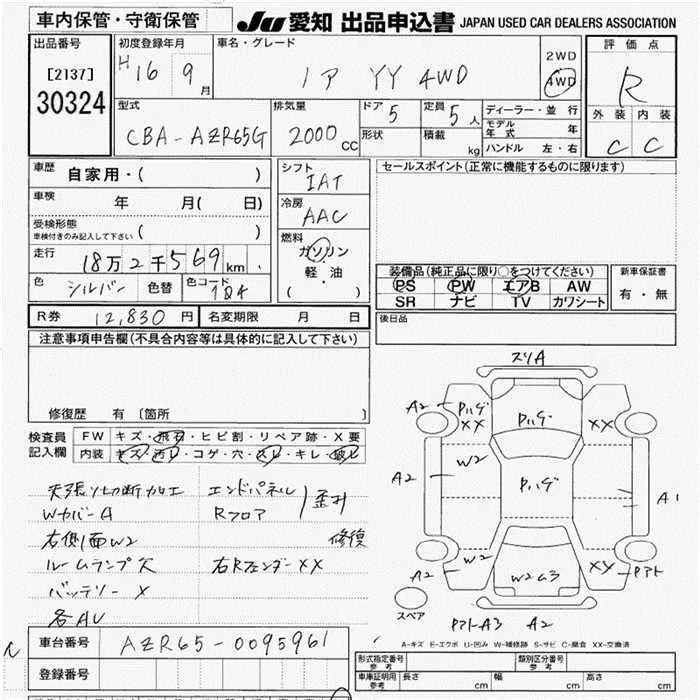 車内保管・守衛保管
JU 愛知 出品申込書 JAPAN USED CAR DEALERS ASSOCIATION
出品番号
[2137]
30324
初度登録年月
H 16 9 月
車名・グレード
ノア YY 4WD
2WD
4WD
評価点
R
外装 内装
C C
型式
CBA-AZR65G
排気量
2000 CC
ドア 5
形状
定員 5 人
積載 kg
ディーラー・並行
モデル年式 年
ハンドル 左・右
車歴 自家用・( )
車検 年 月( 日)
受検形態
車検付きのみ記入して下さい ( )
走行 18万2千569km
色 シルバー 色替 色コード 1D4
シフト
IAT
冷房
AAC
燃料
ガソリン
軽・油
( )
セールスポイント(正常に機能するものに限ります)
装備品(純正品に限り○をつけてください)
PS PW エアB AW
SR ナビ TV カワシート
新車保証書
有・無
R券 12,830 円 名変期限 月 日
後日品
注意事項申告欄(不具合内容等は具体的に記入して下さい)
修復歴 有 〔箇所 〕
検査員記入欄
FW キズ・飛石・ヒビ割・リペア跡・X要
内装 キズ・汚レ・コゲ・穴・スレ・キレ・破レ
天張り切断加工 エンドパネル
Wカバー A Rフロア 歪み
右側面W2 修復
ルームランプ欠 右Rフェンダー XX
バッテリー X
各AU
車台番号 AZR65-0095961
登録番号
スリA
A2 Pハゲ XX
Pハゲ
XX A2
W2
A2
Pハゲ
A1
A2 W2
W2 G3
XY Pアト
スペア
PアトA3 A2
A-キズ E-エクボ U-凹み W-補修跡 S-サビ C-腐食 XX-交換済
形式指定番号 参考
類別区分番号 参考
車庫証明用 参考 長さ cm 幅 cm 高さ cm